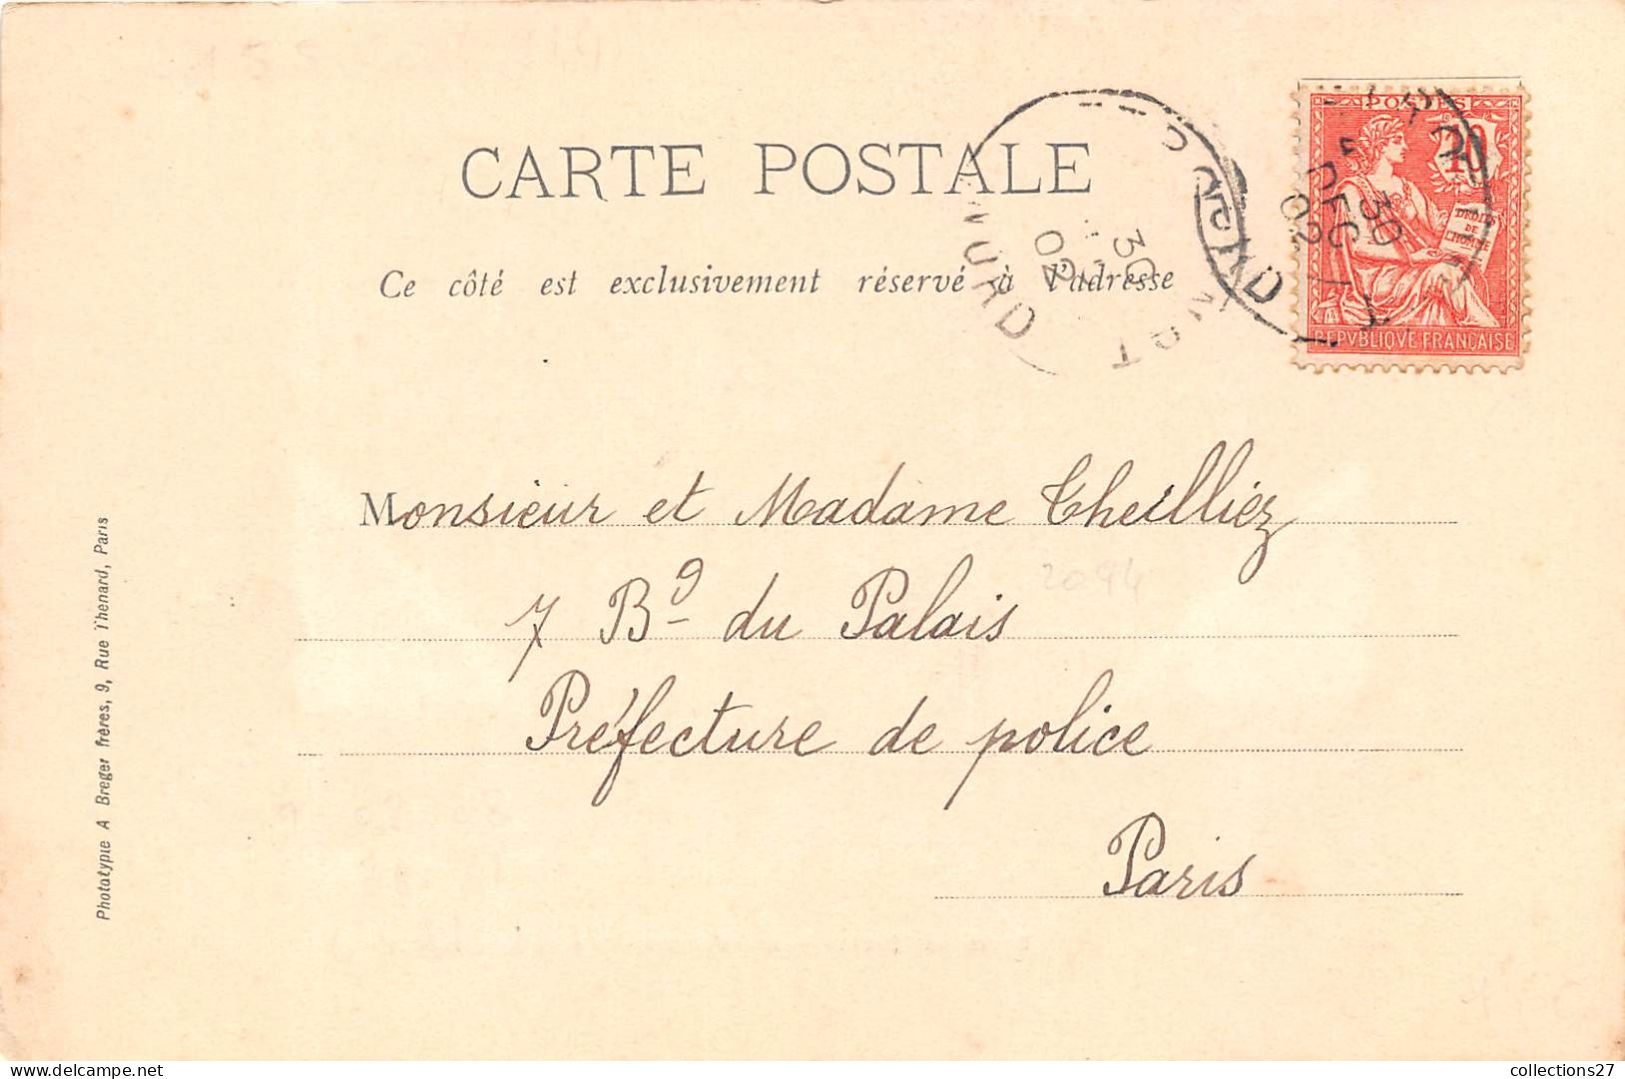 CARTE POSTALE
Ce côté est exclusivement réservé à l'adresse
POSTES
10
DROITS
DE
L'HOMME
REPVBLIQVE FRANÇAISE
30
DEC
02
30
02
Monsieur et Madame Theilliez
2094
7 Bd du Palais
Préfecture de police
Paris
Phototypie A Breger frères, 9, Rue Thenard, Paris
collections27